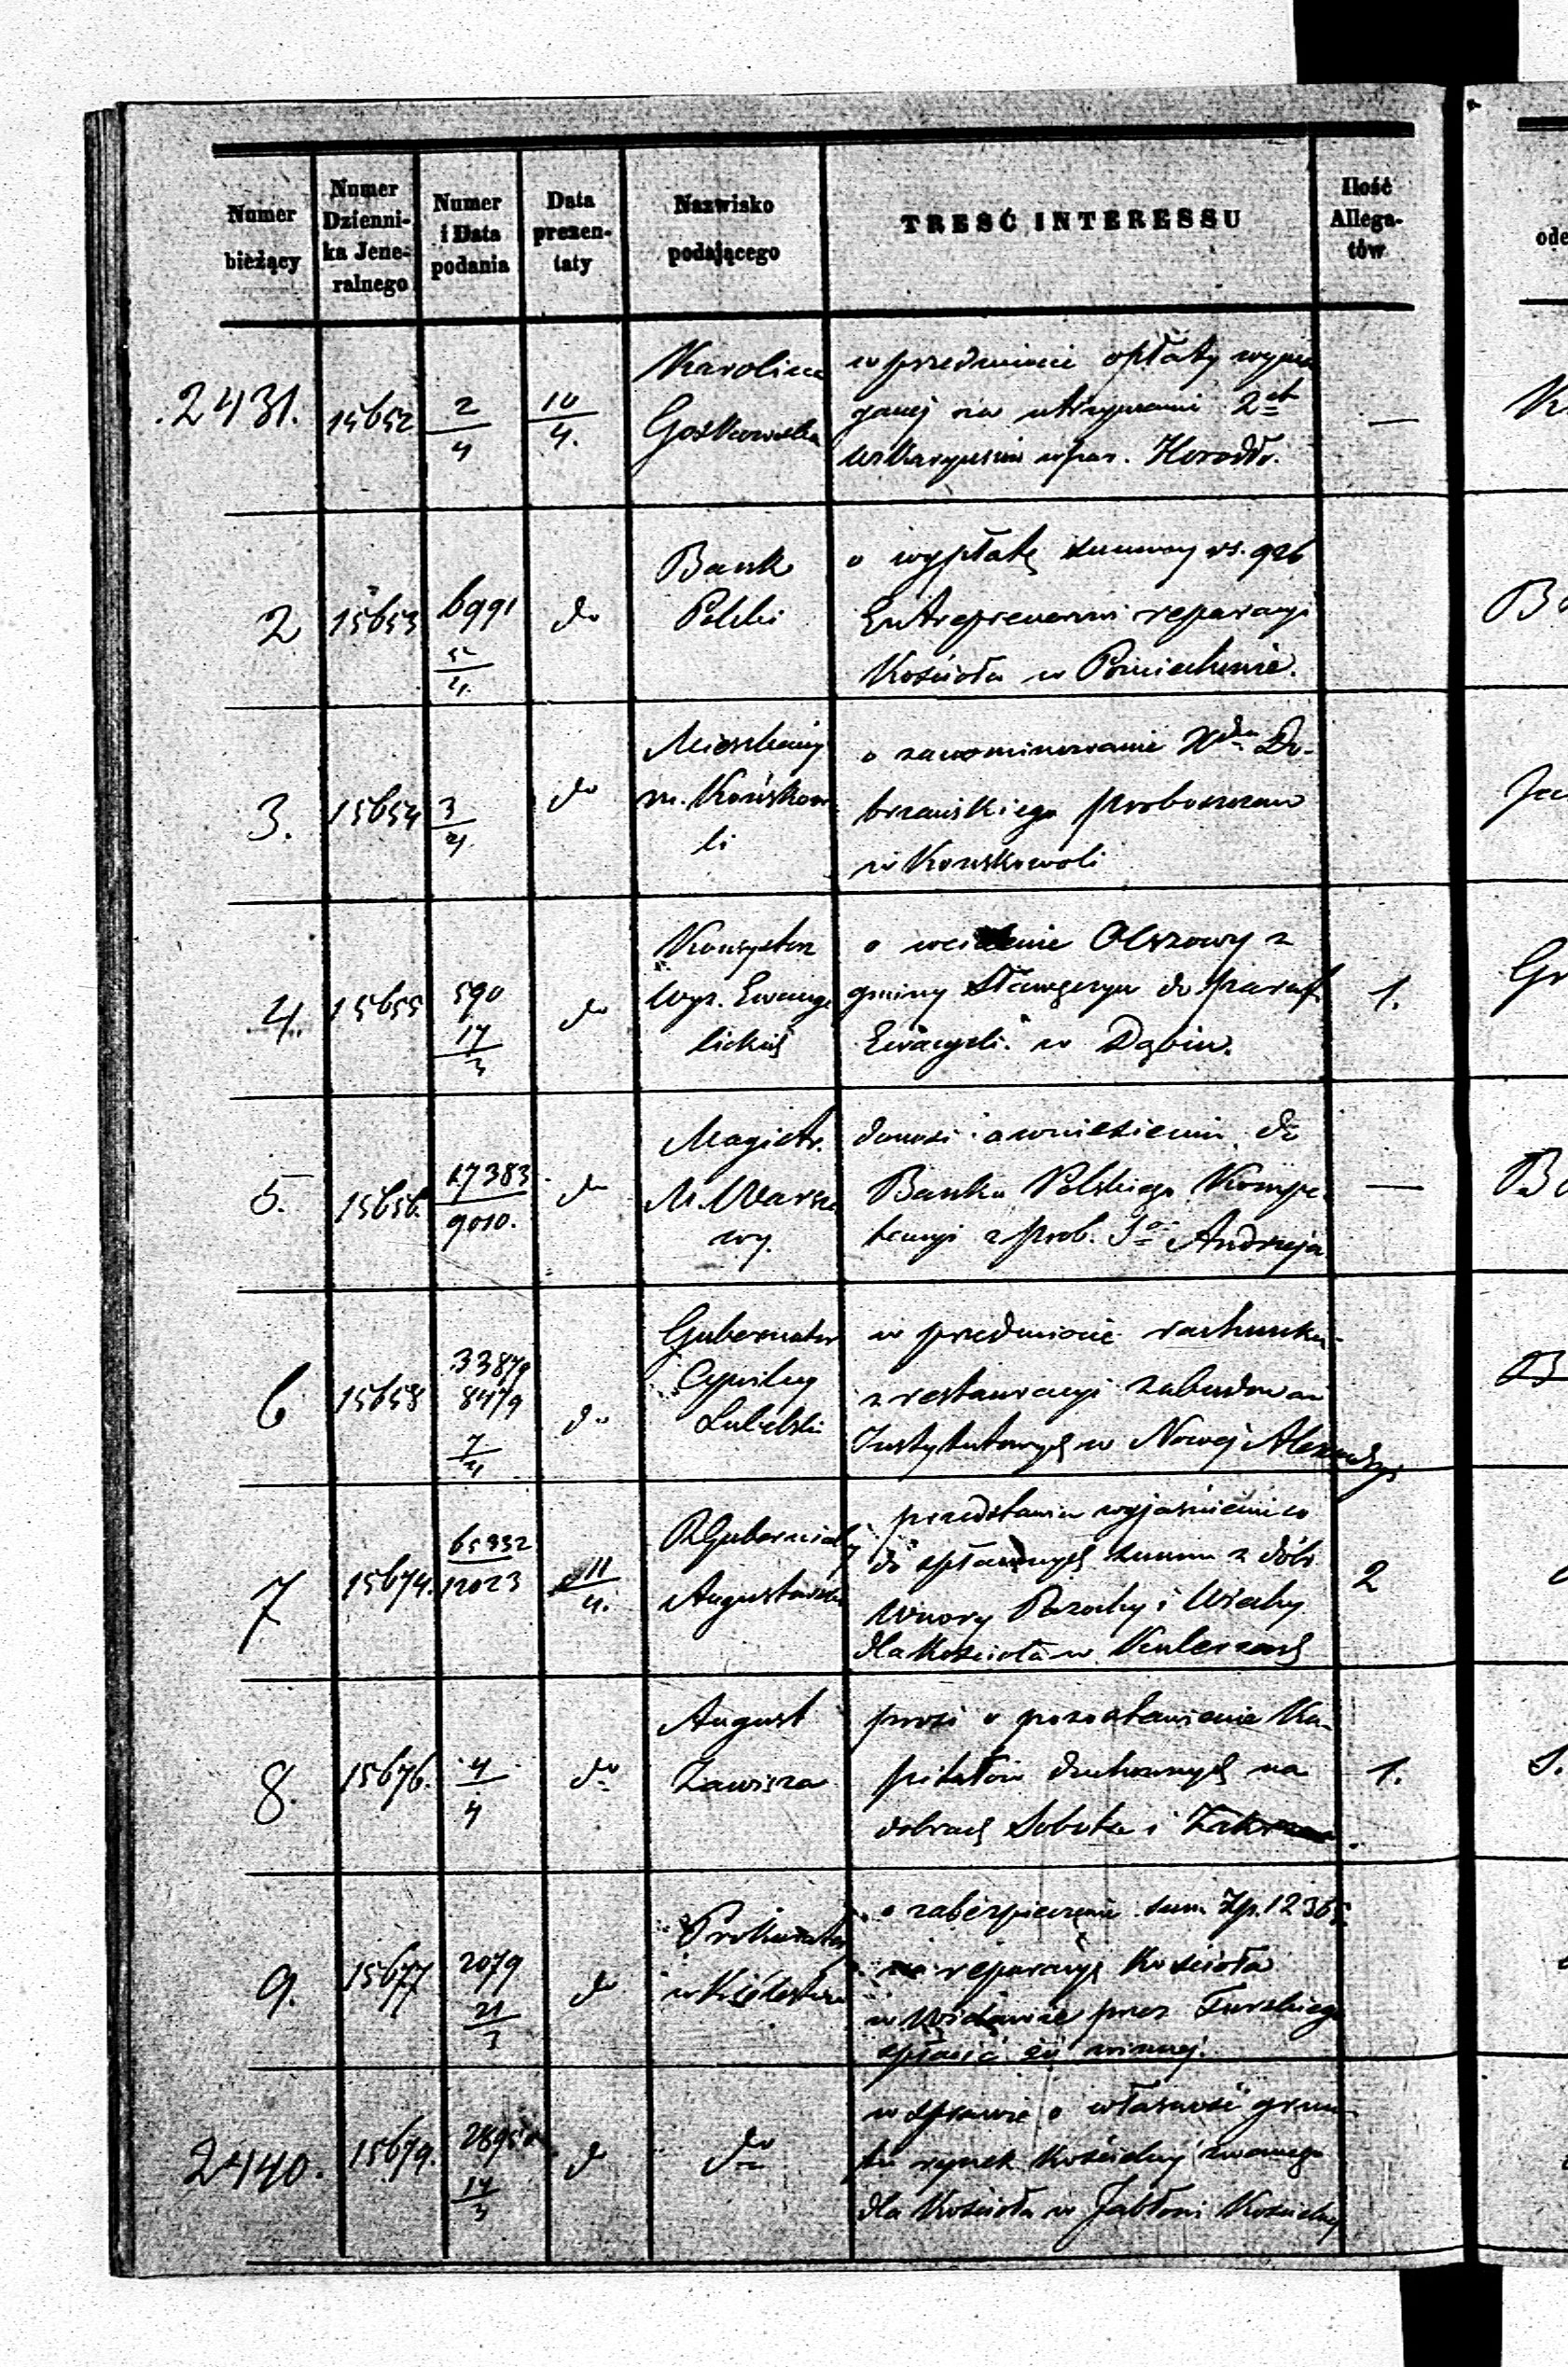 Numer bieżący
Numer Dzienni- ka Jene- ralnego
Numer i Data podania
Data prezen- taty
Nazwisko podającego
TREŚĆ INTERESSU
Ilość Allega- tów
2431. 15652 2/4 10/4. —
Karolina
w przedmiocie opłaty wyma
ganej na utrzymanie 2ch
w par. Horodło.
2 15653 6991 5/4 do
Bank
Polski
o wypłatę summy rs. 926
Entreprenerowi reparacyi
Kościoła w
3. 15654 3/4 do
Mieszkańcy
m. Końskowo
li
o zanominowanie Xdza Do-
brzańskiego proboszczem
w Konskowoli
4. 15655 590 17/3 do 1.
Konsystorz
Wyz. Ewange
lickich
o wcielenie Olszowy z
gminy do paraf.
Ewangeli. w Dąbiu.
5. 15656. 17383/9010. do —
Magistr.
M. Warsza
wy.
donosi o wniesieniu do
Banku Polskiego Kompe-
tencyi z prob. So Andrzeja
6 15658 33879 8479 7/4 do
Gubernator
Cywilny
Lubelski
w przedmiocie rachunku
z restauracyi zabudowań
Instytutowych w Nowej Alexandryi
7 15674. 65332/12023 11/4. 2
R Gubernialny
Augustowski
przedstawia wyjaśnienie co
do spławnych summ z dóbr
Wnory i Wiechy
dla Kościoła w Kuleszach
8. 15676. 4/4 do 1.
August
Zawisza
prosi o pozostawienie Ka-
pitałów duchownych na
dobrach Sobota i
9. 15677 2079 21/3 do
Prokurator
w Królestwie
o zabezpieczenie sum Zp. 12365
na reparacyę Kościoła
w Widawie przez Turskiego
spłacić się winnej.
2440. 15679. 17/3 do do
w sprawie o własność grun
tu rynek Kościelny zwanego
dla Kościoła w Jabłoni Kościelnej